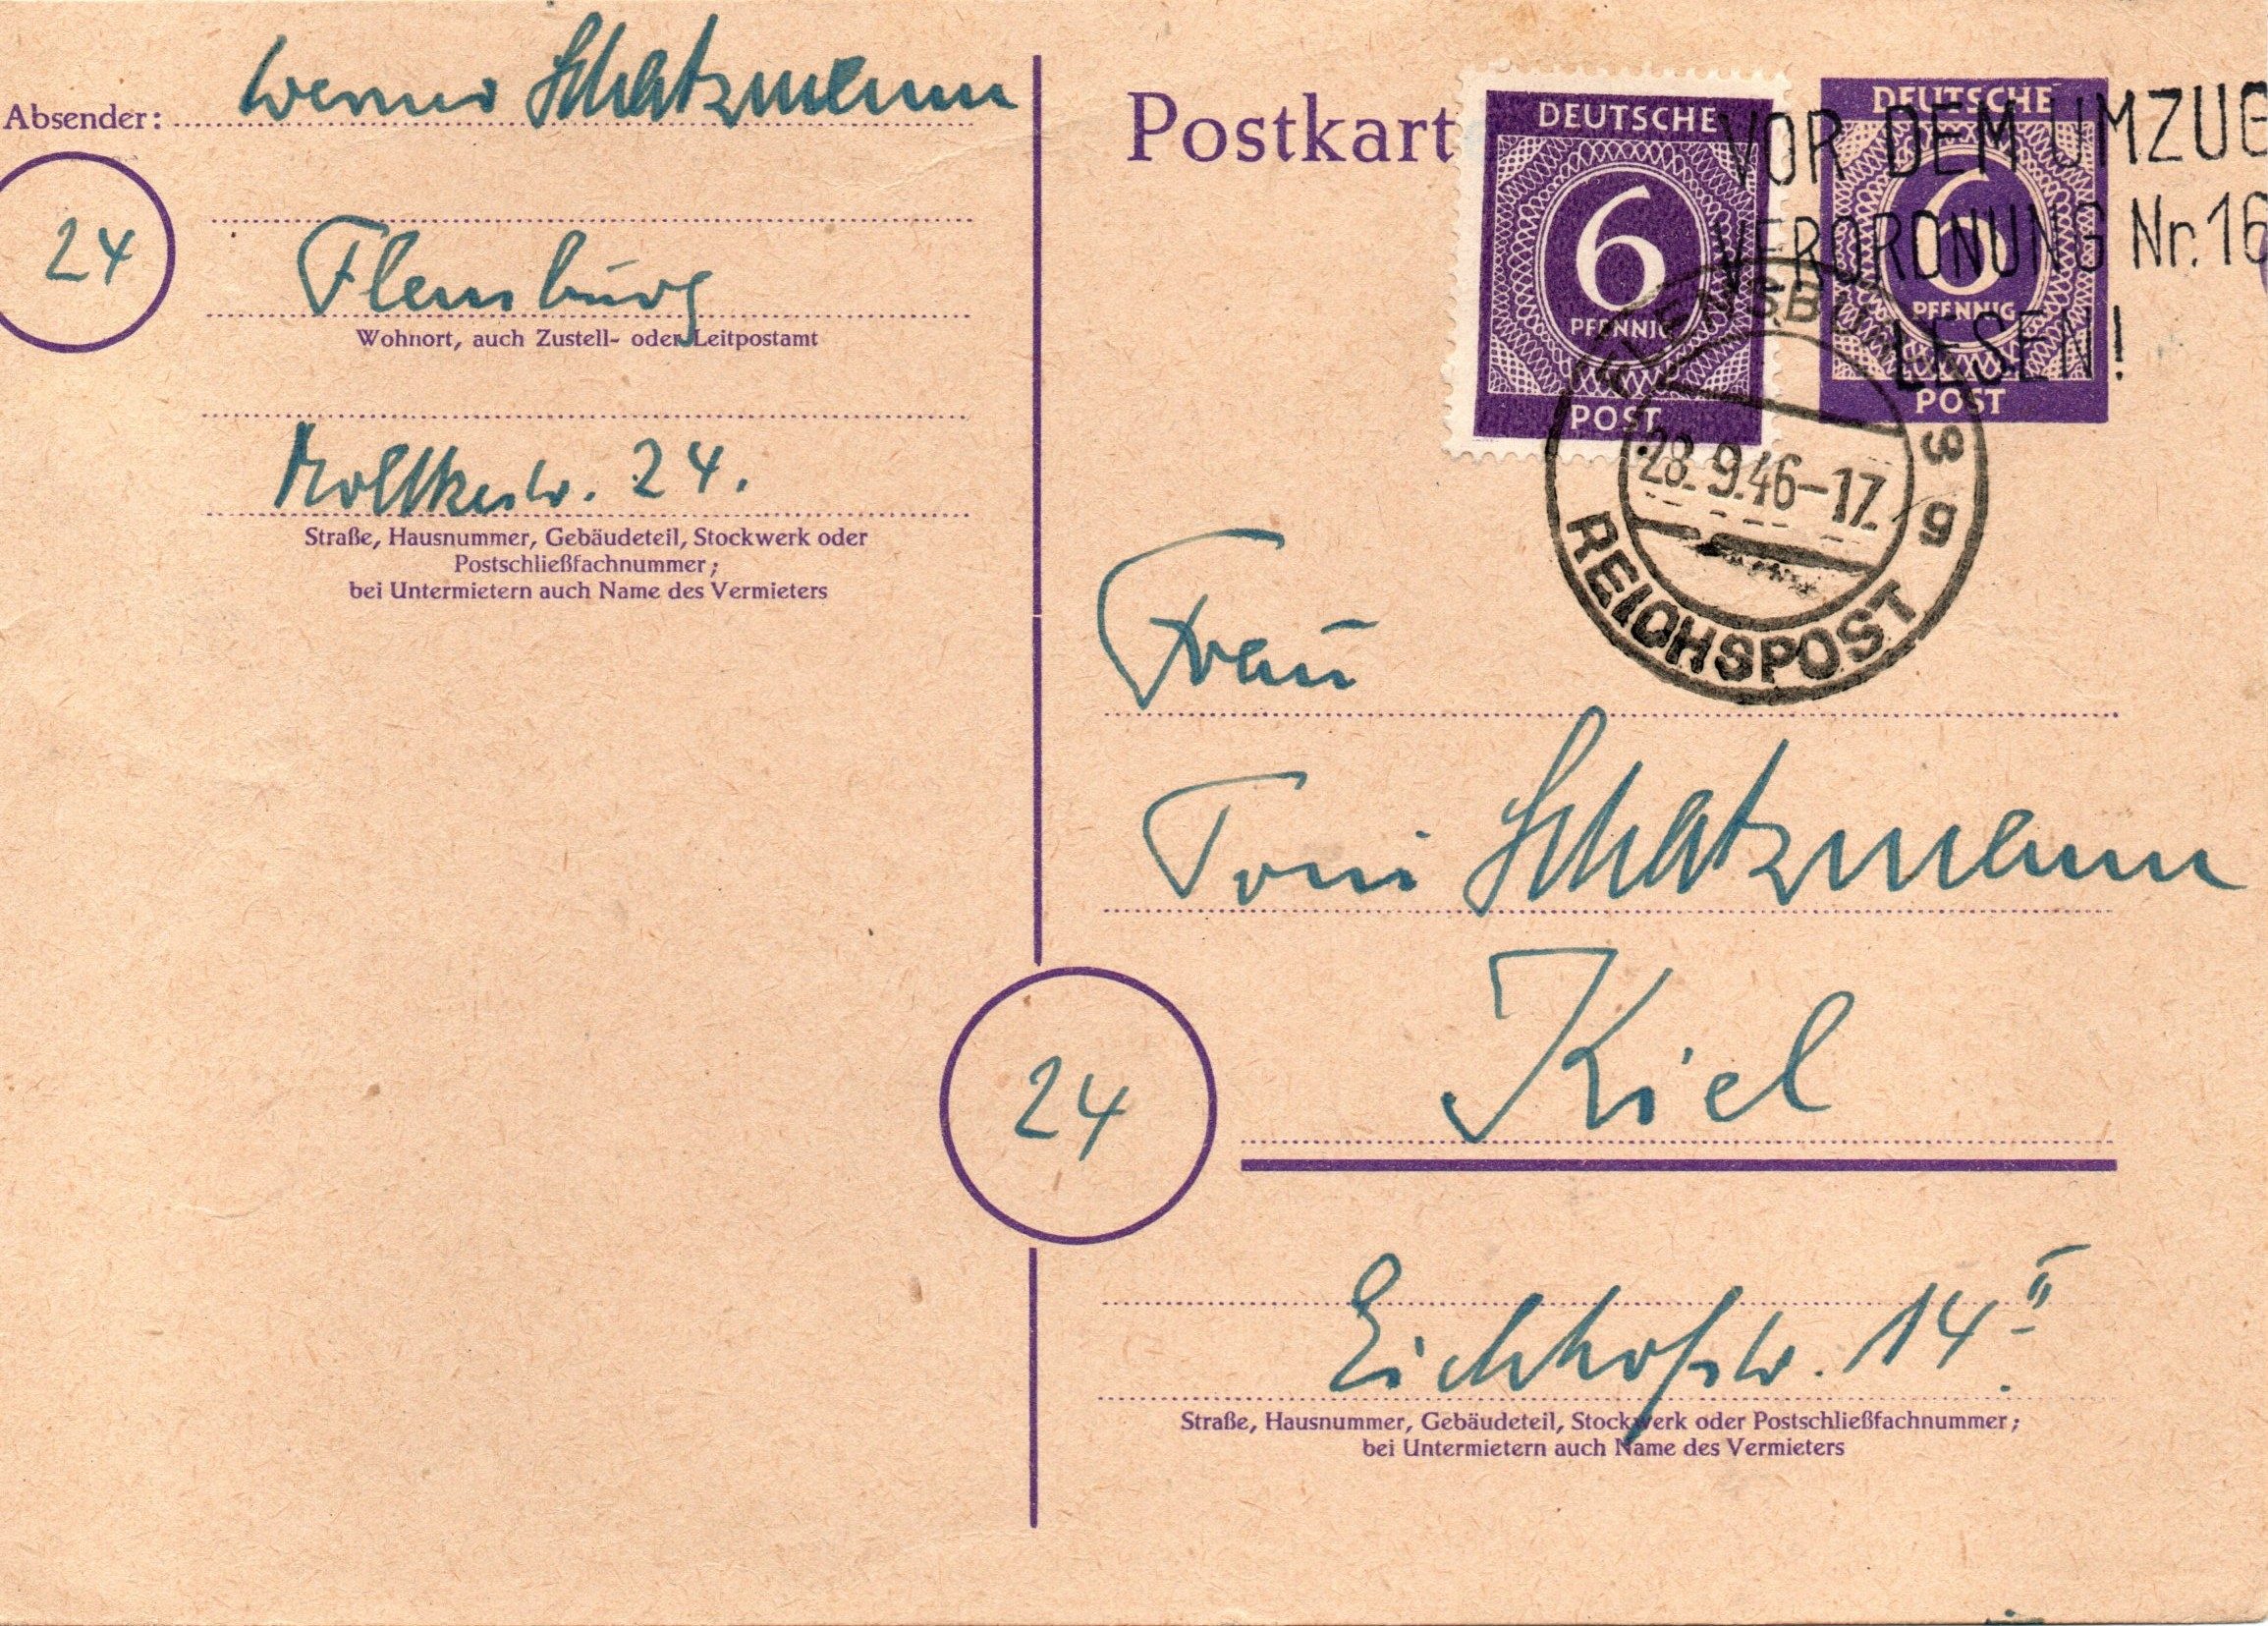 Absender: Werner Schatzmann
24
Flensburg
Wohnort, auch Zustell- oder Leitpostamt
Moltkestr. 24.
Straße, Hausnummer, Gebäudeteil, Stockwerk oder
Postschließfachnummer;
bei Untermietern auch Name des Vermieters
Postkart
DEUTSCHE
6
PFENNIG
POST
DEUTSCHE
6
PFENNIG
POST
VOR DEM UMZUG
VERORDNUNG Nr. 16
LESEN!
FLENSBURG
3 g
28.9.46-17.
REICHSPOST
Frau
Toni Schatzmann
Kiel
24
Eichhofstr. 14 II
Straße, Hausnummer, Gebäudeteil, Stockwerk oder Postschließfachnummer;
bei Untermietern auch Name des Vermieters